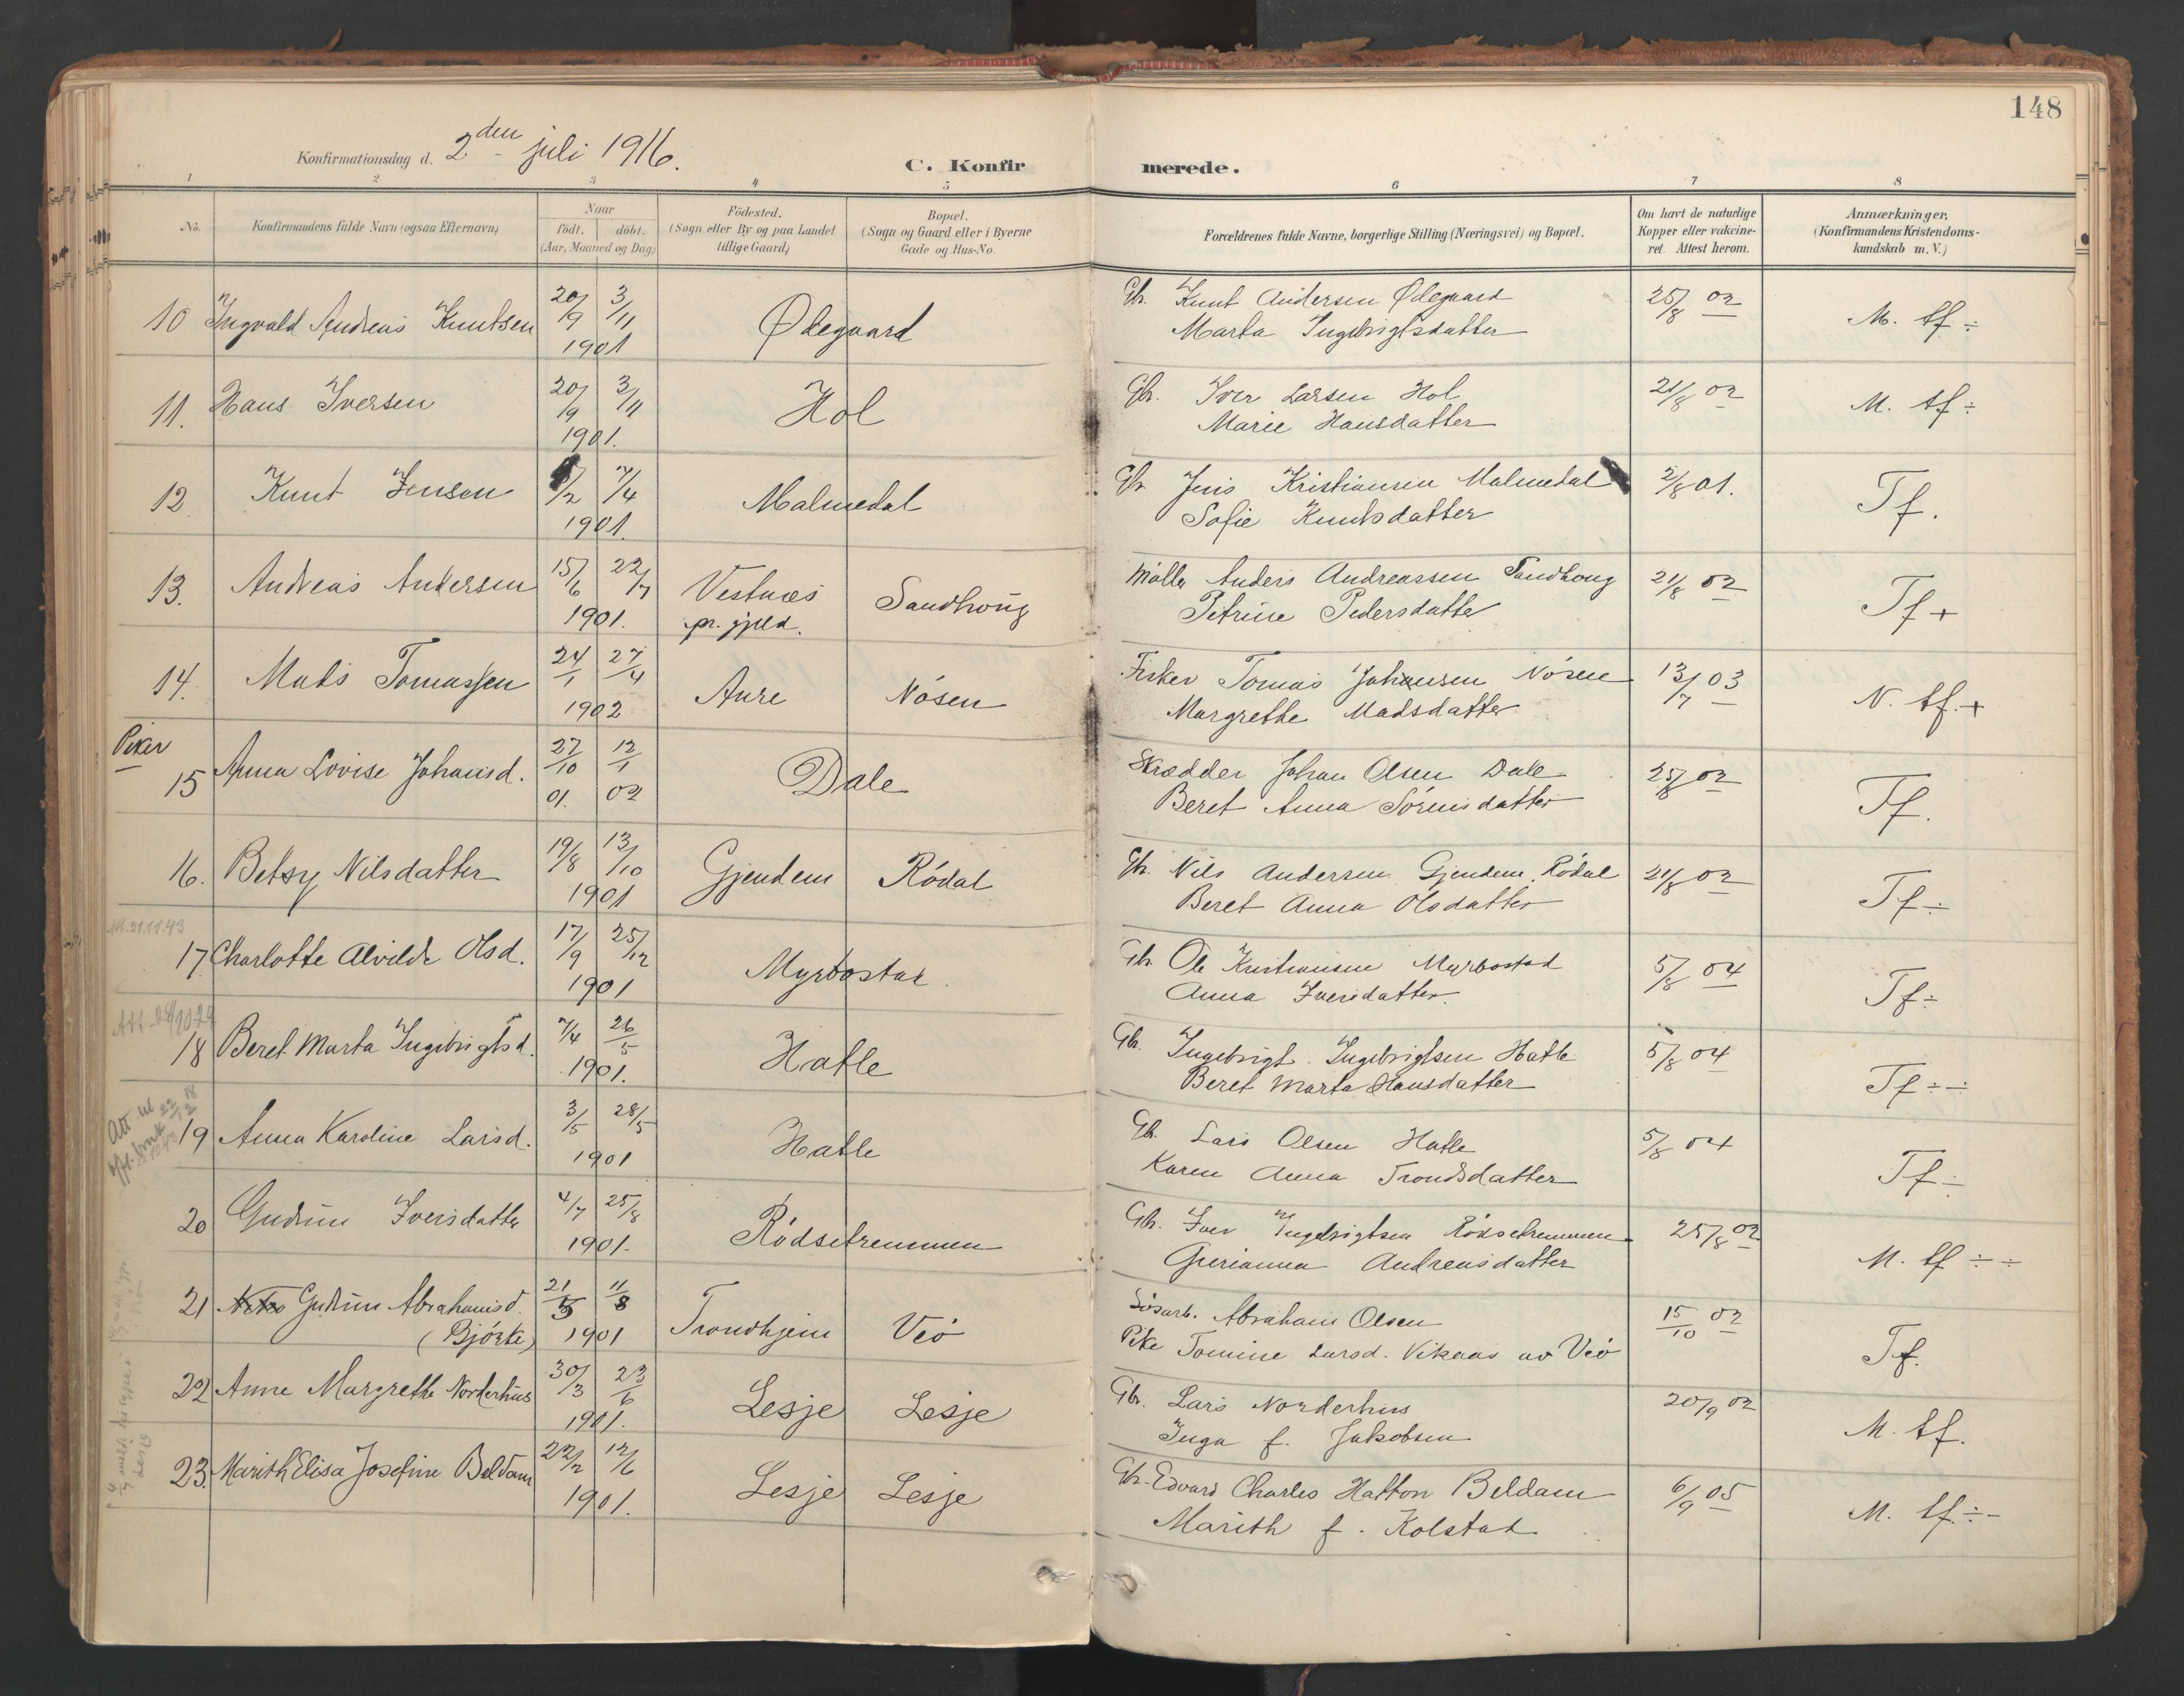 148
Konfirmationsdag d. 2den juli 1916.
C. Konfirmerede.
1 2 3 4 5 6 7 8
No. | Konfirmandens fulde Navn (ogsaa Efternavn) | Naar født. døbt. (Aar, Maaned og Dag) | Fødested. (Sogn eller By og paa Landet tillige Gaard) | Bopæl. (Sogn og Gaard eller i Byerne Gade og Hus-No. | Forældrenes fulde Navne, borgerlige Stilling (Næringsvei) og Bopæl. | Om havt de naturlige Kopper eller vakcineret. Attest herom. | Anmærkninger. (Konfirmandens Kristendomskundskab m. V.)
10 Ingvald Andreas Knutsen 20/9 3/11 1901 Ødegaard Gbr. Knut Andersen Ødegaard 25/8 02 M. tf ÷
Marta Ingebrigtsdatter
11. Hans Iversen 20/9 3/11 1901. Hol Gbr. Iver Larsen Hol 21/8 02 M. tf ÷
Marie Hansdatter
12 Knut Jensen /2 7/4 1901. Malmedal Gbr Jens Kristiansen Malmedal 2/8 01. Tf.
Sofie Knutsdatter
13. Andreas Andersen 15/6 22/7 1901. Vestnæs pr. gjeld. Sandhoug Møller Anders Andreassen Sandhoug 21/8 02 Tf +
Petrine Pedersdatter
14. Mats Tomassen 24/1 27/4 1902 Aure Nösen Fisker Tomas Johansen Nösen 13/7 03 N. tf. +
Margrethe Madsdatter
Piker
15 Anna Lovise Johansd. 27/10 01. 12/1 02 Dale Skrædder Johan Olsen Dale 25/8 02 Tf.
Beret Anna Sörensdatter
16. Betsy Nilsdatter 19/8 13/10 1901 Gjendem Rödal Gbr. Nils Andersen Gjendem, Rödal 21/8 02 Tf ÷
Beret Anna Olsdatter
Att. 21.11.43
17 Charlotte Alvilde Olsd. 17/9 25/12 1901 Myrbostad Gbr Ole Kristiansen Myrbostad 5/8 04 Tf ÷
Anna Iversdatter.
18 Beret Marta Ingebrigtsd. 7/4 26/5 1901. Hatle Gbr. Ingebrigt Ingebrigtsen Hatle 5/8 04 Tf ÷÷
Beret Marta Hansdatter
19 Anna Karoline Larsd. 3/5 28/5 1901 Hatle Gbr. Lars Olsen Hatle 5/8 04 Tf ÷
Karen Anna Trondsdatter
20 Gudrun Iversdatter 4/7 25/8 1901. Rödsetremmen Gbr. Iver Ingebrigtsen Rödsetremmen 25/8 02 M. tf ÷÷
Gurianna Andreasdatter
21 Gudrun Abrahamsd. (Bjórke) 21/5 11/8 1901 Trondhjem Veö Lösarb. Abraham Olsen 15/10 02 Tf.
Pike Tomine Larsd. Vikaas av Veö
22 Anne Margrethe Norderhus 30/3 23/6 1901. Lesje Lesje Gbr. Lars Norderhus 20/9 02 M. tf.
Inga f. Jakobsen
23. Marith Elisa Josefine Beldam 22/2 12/6 1901. Lesje Lesje Gbr. Edvard Charles Hatton Beldam 6/9 05 M. tf. ÷-
Marith f. Kolstad